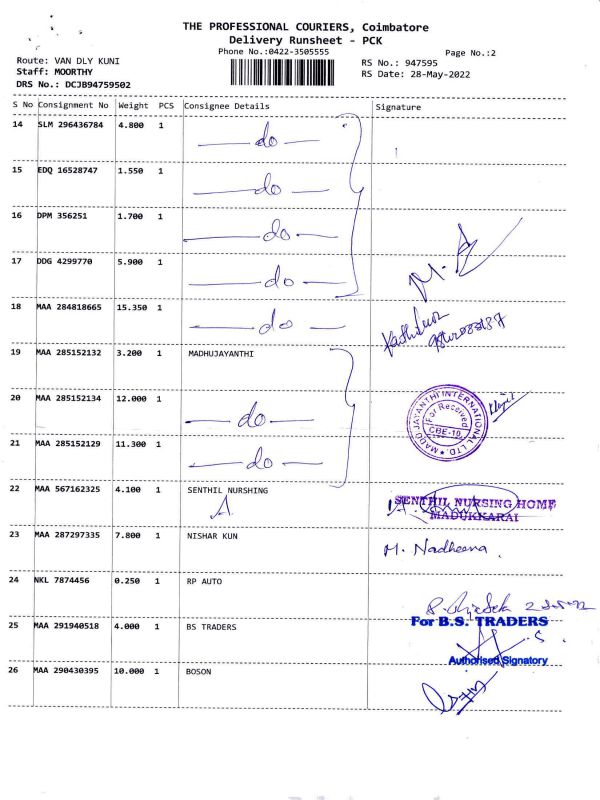 THE PROFESSIONAL COURIERS, Coimbatore
Delivery Runsheet - PCK
Phone No.:0422-3505555
Page No.:2
Route: VAN DLY KUNI
RS No.: 947595
Staff: MOORTHY
RS Date: 28-May-2022
DRS No.: DCJB94759502
S No Consignment No Weight PCS Consignee Details Signature
14 SLM 296436784 4.800 1 do
15 EDQ 16528747 1.550 1 do
16 DPM 356251 1.700 1 do
17 DDG 4299770 5.900 1 do
18 MAA 284818665 15.350 1 do
19 MAA 285152132 3.200 1 MADHUJAYANTHI
20 MAA 285152134 12.000 1 do
MADU JAYANTHI INTERNATIONAL LTD.
For Received
CBE-18
21 MAA 285152129 11.300 1 do
22 MAA 567162325 4.100 1 SENTHIL NURSHING
SENTHIL NURSING HOME
MADUKKARAI
23 MAA 287297335 7.800 1 NISHAR KUN
M. Nadheena
24 NKL 7874456 0.250 1 RP AUTO
25 MAA 291940518 4.000 1 BS TRADERS
For B.S. TRADERS
Authorised Signatory
26 MAA 290430395 10.000 1 BOSON